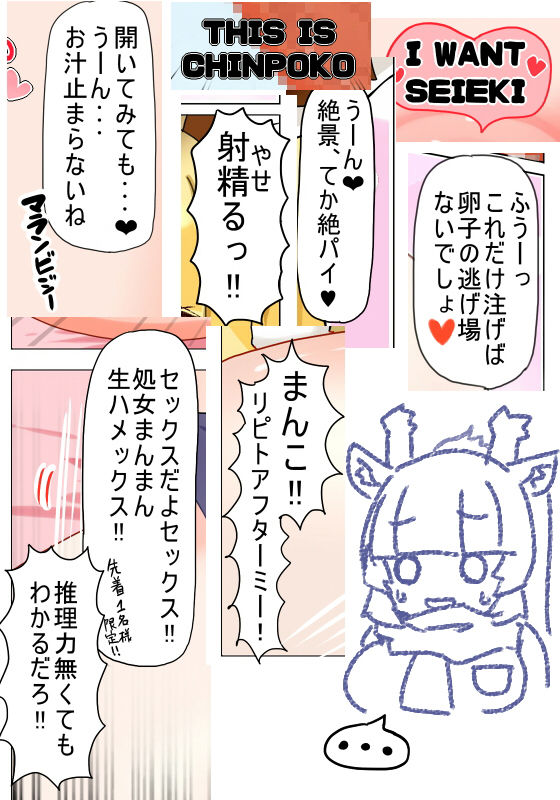 THIS IS
CHINPOKO
I WANT
SEIEKI
開いてみても・・・❤
うーん・・・
お汁止まらないね
マランビジー
やせ
射精るっ!!
うーん❤
絶景、てか絶パイ♥
ふうーっ
これだけ注げば
卵子の逃げ場
ないでしょ❤
セックスだよセックス!!
処女まんまん
生ハメックス!!
先着1名様
限定!!
まんこ!!
リピトアフターミー!
推理力無くても
わかるだろ!!
...